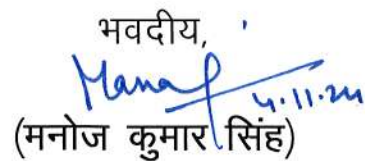 भवदीय,
Manoj
4.11.24
(मनोज कुमार सिंह)